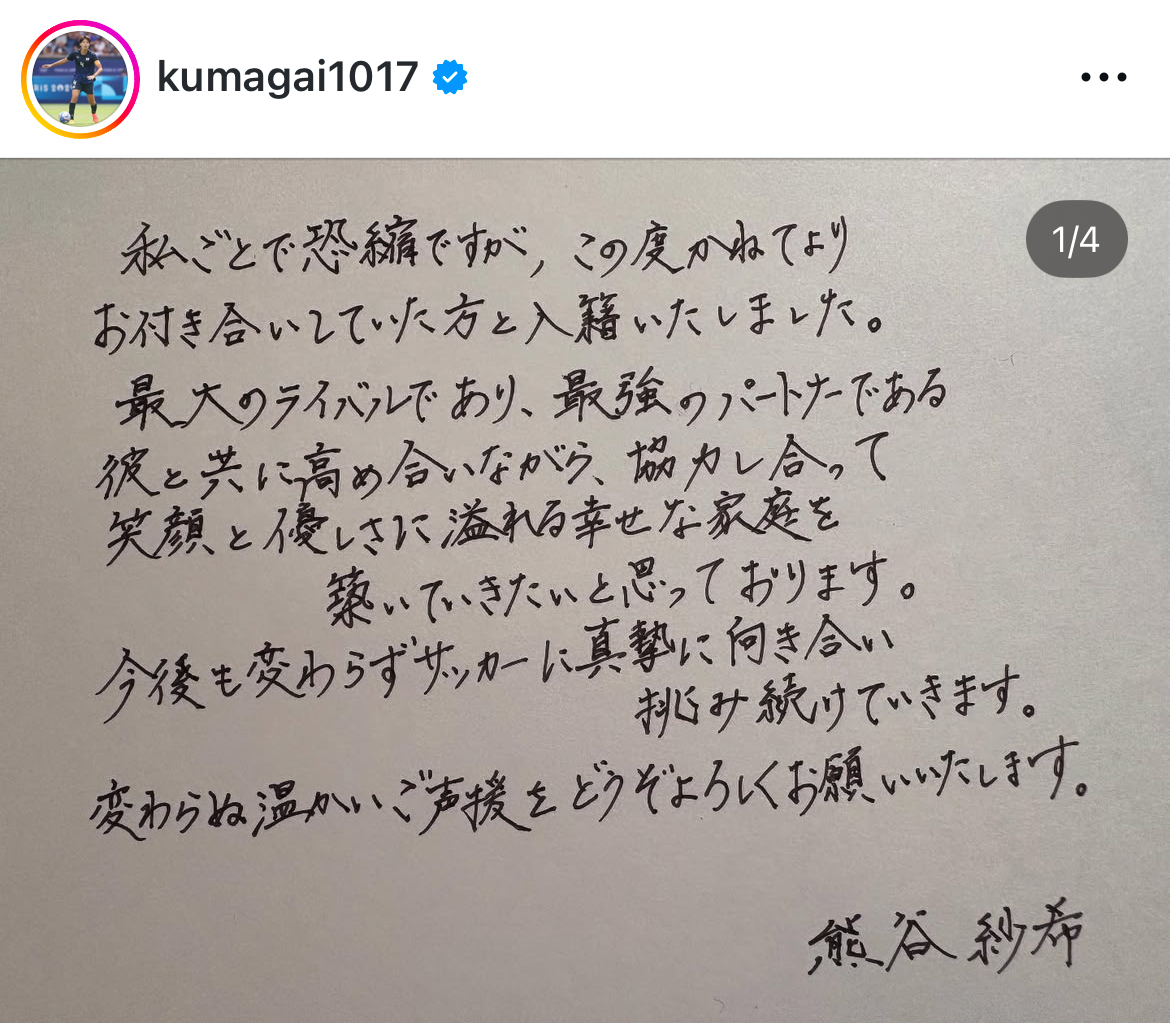 kumagai1017
1/4
私ごとで恐縮ですが、この度かねてより
お付き合いしていた方と入籍いたしました。
最大のライバルであり、最強のパートナーである
彼と共に高め合いながら、協力し合って
笑顔と優しさに溢れる幸せな家庭を
築いていきたいと思っております。
今後も変わらずサッカーに真摯に向き合い
挑み続けていきます。
変わらぬ温かいご声援をどうぞよろしくお願いいたします。
熊谷 紗希